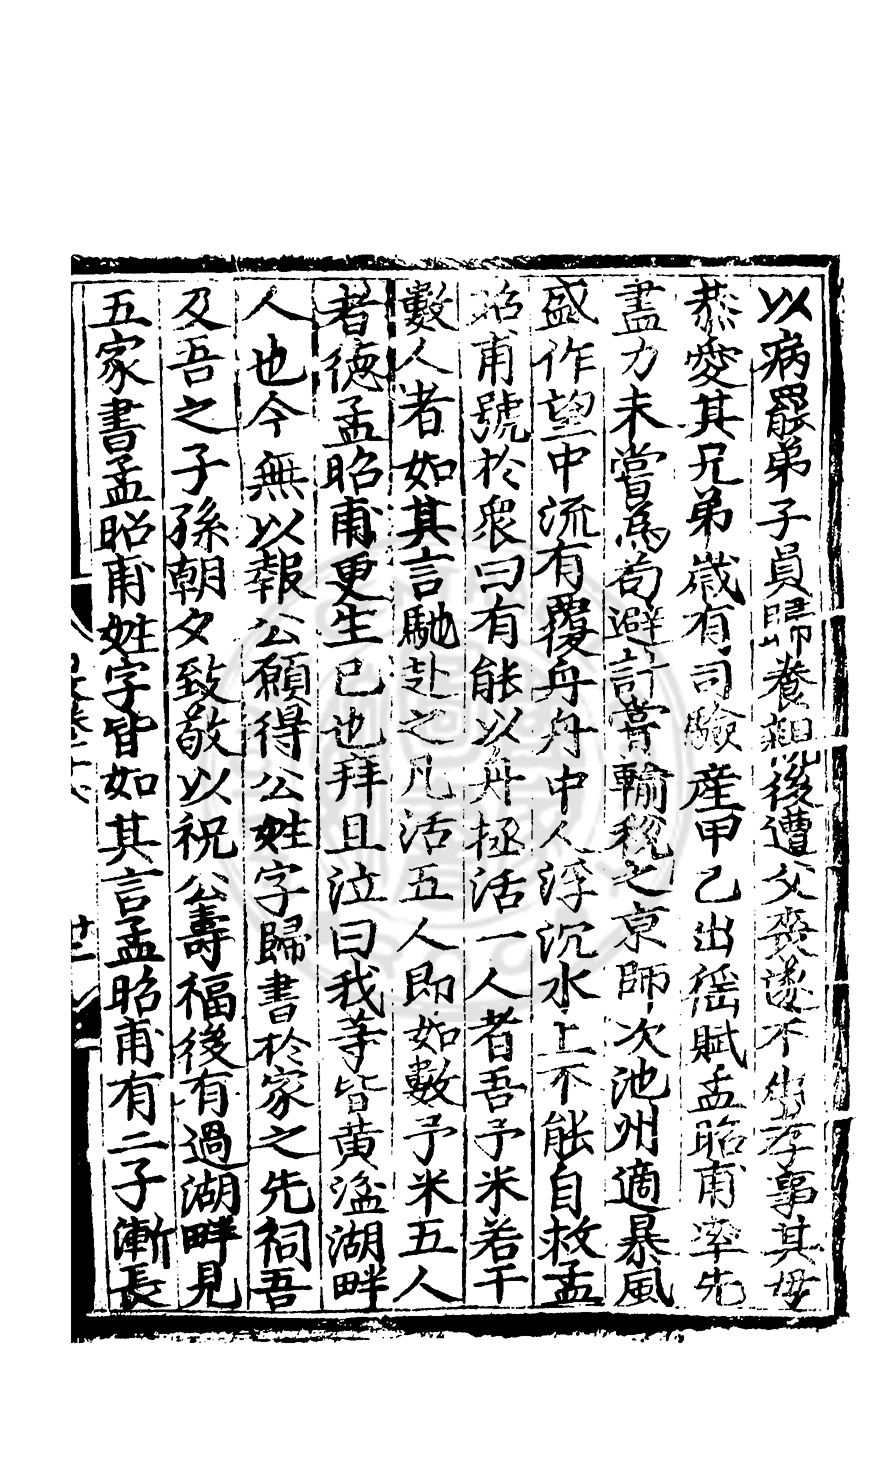 以病罷弟子員歸養親後遭父喪遂不出存事其母
恭愛其兄弟歲有司驗產甲乙出徭賦孟昭甫率先
盡力未嘗為苟避計嘗輸稅之京師次池州適暴風
盛作望中流有覆舟舟中人浮沉水上不能自救孟
昭甫號於衆曰有能以舟拯活一人者吾予米若干
數人者如其言馳赴之凡活五人即如數予米五人
者德孟昭甫更生已也拜且泣曰我等皆黄湓湖畔
人也今無以報公願得公姓字歸書於家之先祠吾
及吾之子孫朝夕致敬以祝公壽福後有過湖畔見
五家書孟昭甫姓字皆如其言孟昭甫有二子漸長